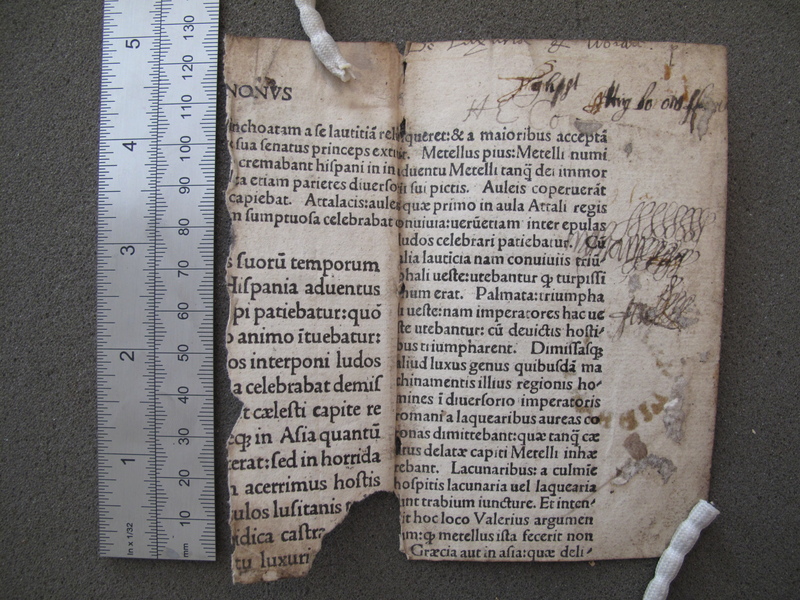 De Luxuria &
NONVS
inchoatam a se lautitiā relinqueret:& a maioribus acceptā
sua senatus princeps Metellus pius:Metelli numi
cremabant hispani in induentu Metelli tanq̄ dei immor
ta etiam parietes diuersorii sui pictis. Auleis coperuerāt
capiebat. Attalacis:aulequæ primo in aula Attali regis
m sumptuosa celebrabat onuiuia:uerūetiam inter epulas
ludos celebrari patiebatur. Cū
alia lauticia nam conuiuiis triū
phali ueste:utebantur ꝙ turpissi
num erat. Palmata:triumpha
i ueste:nam imperatores hac ue
ste utebantur: cū deuictis hosti-
bus triumpharent. Dimissasq;
aliud luxus genus quibusdā ma
chinamentis illius regionis ho-
mines ī diuersorio imperatoris
romani a laquearibus aureas co
onas dimittebant:quæ tanq̄ cæ
itus delatæ capiti Metelli inhæ
rebant. Lacunaribus: a culmīe
hospitis lacunaria uel laquearia
unt trabium iuncturæ. Et inten
it hoc loco Valerius argumen
um:ꝙ metellus ista fecerit non
Græcia aut in asia:quæ deli-
s suorū temporum
Hispania aduentus
pi patiebatur:quō
o animo ītuebatur:
os interponi ludos
a celebrabat demiss
t cælesti capite re
eq; in Asia quantū
terat:sed in horrida
n acerrimus hostis
ulos lusitanis
idica castra
tu luxuri
5
4
3
2
1
130
120
110
100
90
80
70
60
50
40
30
20
10
In x 1/32
mm